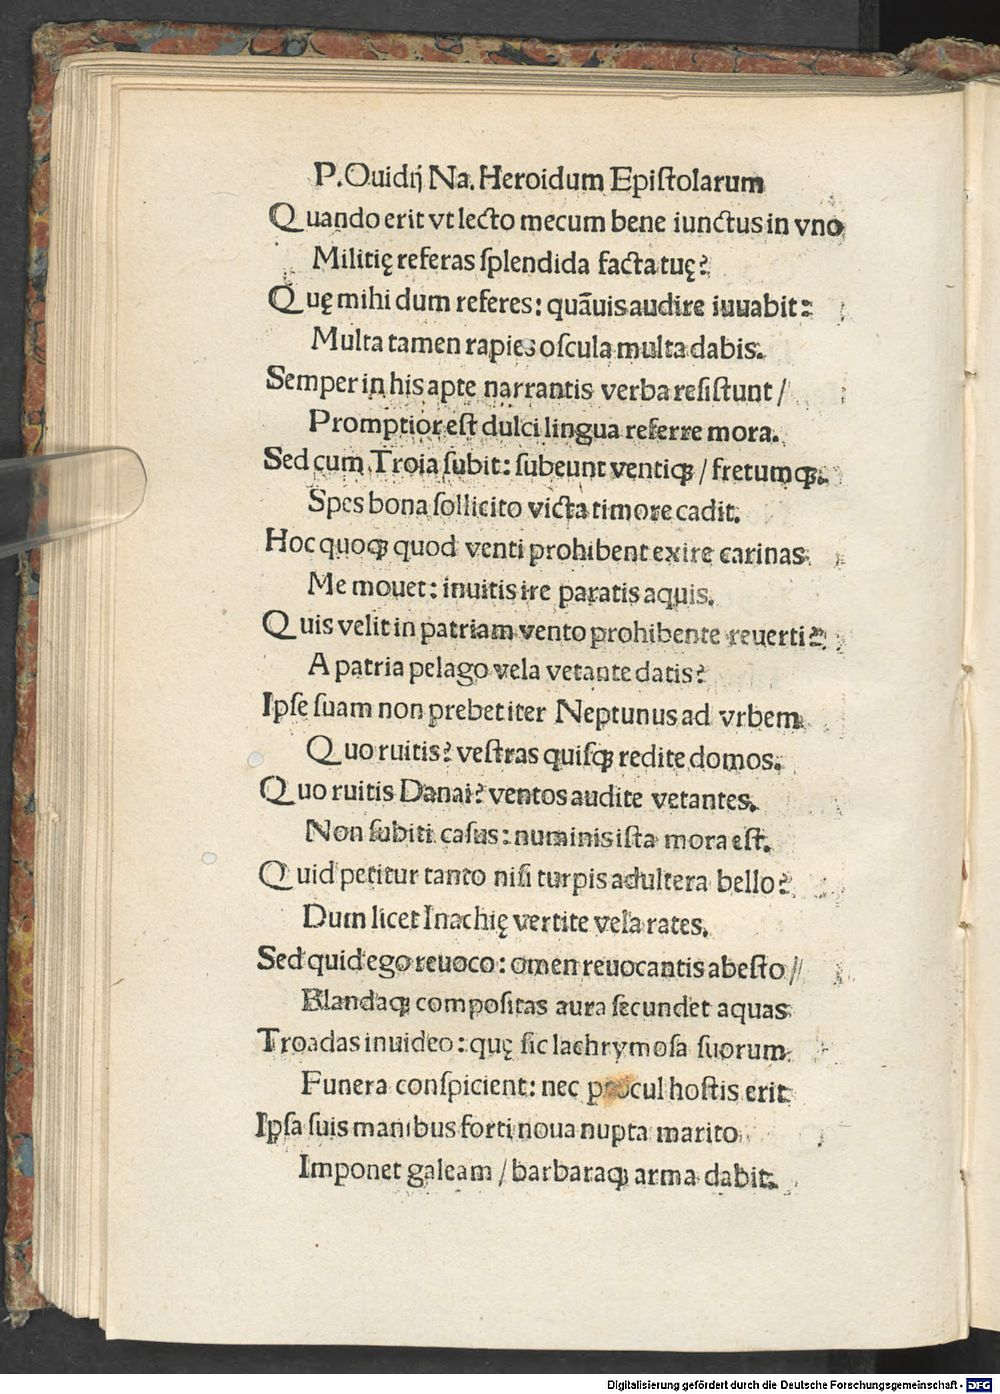 P.Ouidij Na. Heroidum Epiſtolarum
Quando erit vt lecto mecum bene iunctus in vno
Militię referas ſplendida facta tuę?
Quę mihi dum referes: quāuis audire iuuabit:
Multa tamen rapies oſcula multa dabis.
Semper in his apte narrantis verba reſiſtunt /
Promptior eſt dulci lingua referre mora.
Sed cum Troia ſubit: ſubeunt ventiqꝫ / fretumqꝫ.
Spes bona ſollicito victa timore cadit.
Hoc quoqꝫ quod venti prohibent exire carinas
Me mouet: inuitis ire paratis aquis.
Quis velit in patriam vento prohibente reuerti?
A patria pelago vela vetante datis?
Ipſe ſuam non prebet iter Neptunus ad vrbem
Quo ruitis? veſtras quiſqꝫ redite domos.
Quo ruitis Danai? ventos audite vetantes.
Non ſubiti caſus: numinis iſta mora eſt.
Quid petitur tanto niſi turpis adultera bello?
Dum licet Inachię vertite vela rates.
Sed quid ego reuoco: omen reuocantis abeſto /
Blandaqꝫ compoſitas aura ſecundet aquas
Troadas inuideo: quę ſic lachrymoſa ſuorum
Funera conſpicient: nec procul hoſtis erit
Ipſa ſuis manibus forti noua nupta marito
Imponet galeam / barbaraqꝫ arma dabit.
Digitalisierung gefördert durch die Deutsche Forschungsgemeinschaft - DFG